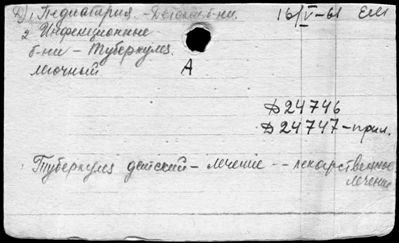 D, Педиатрия - Детские б-ни. 16/V-61 ЕМ
2 Инфекционные
б-ни - Туберкулез
легочный
А
Д24746
Д24747-прил.
Туберкулез детский - лечение -- лекарственное
лечение